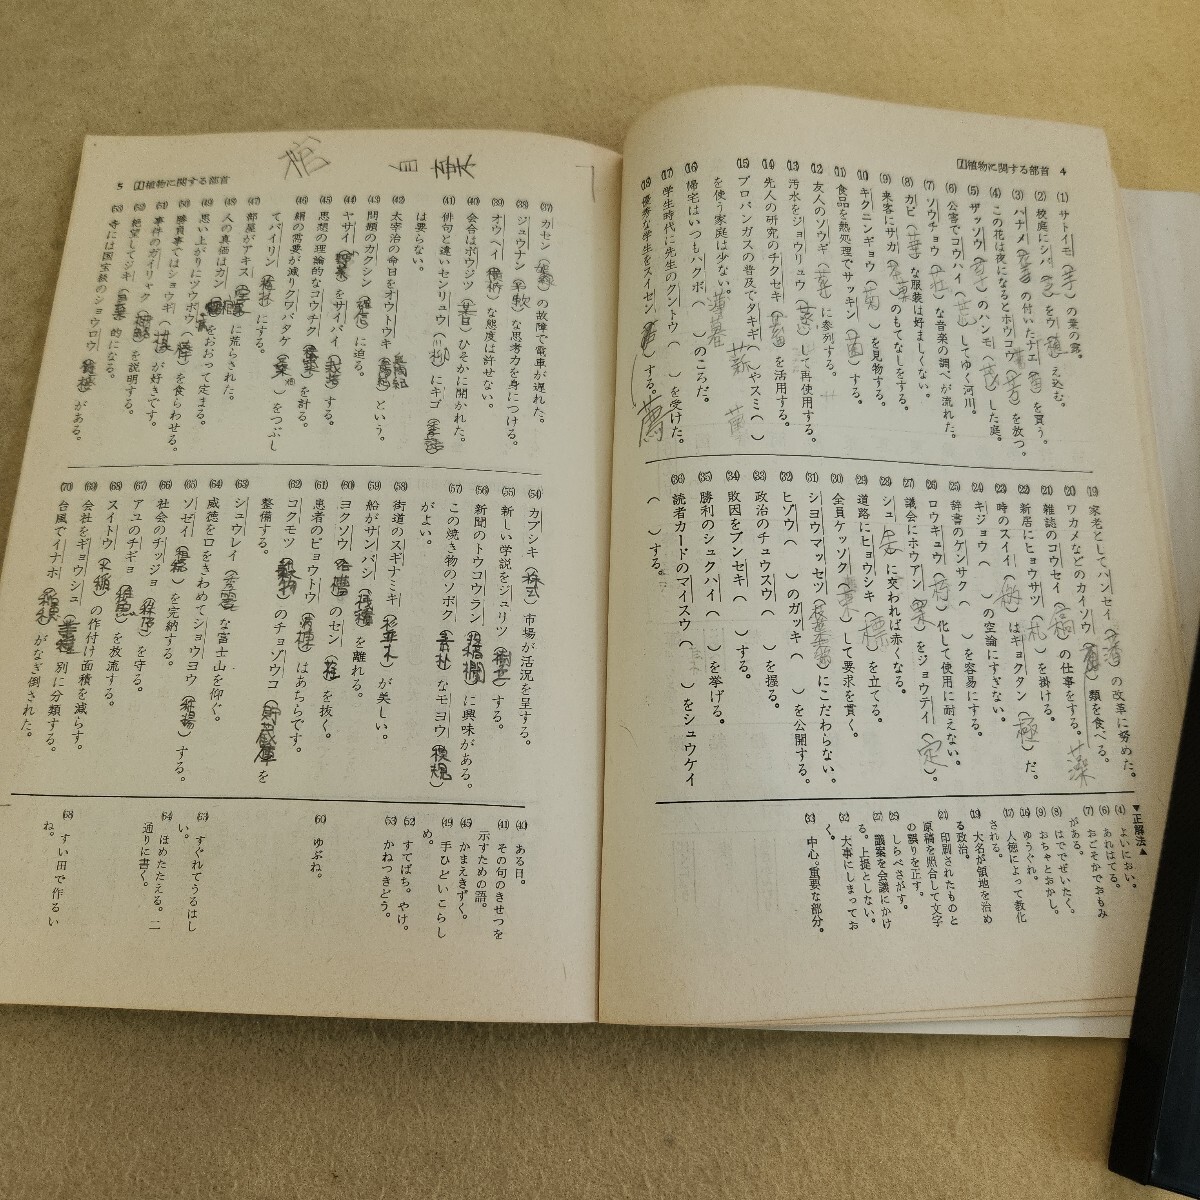 1 植物に関する部首 4
(1) サトイモ(芋)の葉の露。
(2) 校庭にシバ(芝)をウ(植)え込む。
(3) ハナメ( )の付いたナエ(苗)を買う。
(4) この花は夜になるとホウコウ(芳)を放つ。
(5) ザッソウ( )のハンモ( )した庭。
(6) 公害でコウハイ( )してゆく河川。
(7) ソウチョウ(荘)な音楽の調べが流れた。
(8) カビ(華)な服装は好ましくない。
(9) 来客にサカ(茶菓)のもてなしをする。
(10) キクニンギョウ(菊)を見物する。
(11) 食品を熱処理でサッキン(菌)する。
(12) 友人のソウギ(葬)に参列する。
(13) 汚水をジョウリュウ(蒸)して再使用する。
(14) 先人の研究のチクセキ(蓄)を活用する。
(15) プロパンガスの普及でタキギ(薪)やスミ( )
を使う家庭は少ない。
(16) 帰宅はいつもハクボ(薄暮)のころだ。
(17) 学生時代に先生のクントウ( )を受けた。
(18) 優秀な学生をスイセン(薦)する。
薦
(19) 家老としてハンセイ(藩)の改革に努めた。
(20) ワカメなどのカイソウ( )類を食べる。
藻
(21) 雑誌のコウセイ( )の仕事をする。
(22) 新居にヒョウサツ(札)を掛ける。
(23) 時のスイイ( )はキョクタン(極)だ。
(24) キジョウ( )の空論にすぎない。
(25) 辞書のケンサク( )を容易にする。
(26) ロウキュウ(朽)化して使用に耐えない。
(27) 議会にホウアン(案)をジョウテイ(定)。
(28) シュ(朱)に交われば赤くなる。
(29) 道路にヒョウシキ(標)を立てる。
(30) 全員ケッソク(束)して要求を貫く。
(31) ショウマッセツ(枝葉末節)にこだわらない。
(32) ヒゾウ( )のガッキ( )を公開する。
(33) 政治のチュウスウ( )を握る。
(34) 敗因をブンセキ( )する。
(35) 勝利のシュクハイ( )を挙げる。
(36) 読者カードのマイスウ( )をシュウケイ
( )する。
▼正解法▲
(4) よいにおい。
(6) あれはてる。
(7) おごそかでおもみ
がある。
(8) はででぜいたく。
(9) おちゃとおかし。
(16) ゆうぐれ。
(17) 人徳によって教化
される。
(19) 大名が領地を治め
る政治。
(21) 印刷されたものと
原稿を照合して文字
の誤りを正す。
(25) しらべさがす。
(27) 議案を会議にかけ
る。上提としない。
(32) 大事にしまってお
く。
(33) 中心。重要な部分。
5 1 植物に関する部首
棺
(37) カセン(架線)の故障で電車が遅れた。
(38) ジュウナン(柔軟)な思考力を身につける。
(39) オウヘイ(横柄)な態度は許せない。
(40) 会合はボウジツ(某日)ひそかに開かれた。
(41) 俳句と違いセンリュウ(川柳)にキゴ(季語)
は要らない。
(42) 太宰治の命日をオウトウキ( )という。
(43) 問題のカクシン(核心)に迫る。
(44) ヤサイ(野菜)をサイバイ(栽培)する。
(45) 思想の理論的なコウチク(構築)を計る。
(46) 絹の需要が減りクワバタケ(桑畑)をつぶし
てバイリン(梅林)にする。
(47) 部屋がアキス( )に荒らされた。
(48) 人の真価はカン( )をおおって定まる。
(49) 思い上がりにツウボウ(棒)を食らわせる。
(50) 勝負事ではショウギ(棋)が好きです。
(51) 事件のガイリャク(概略)を説明する。
(52) 絶望してジキ(自棄)的になる。
(53) 寺には国宝級のショウロウ(鐘楼)がある。
(54) カブシキ(株式)市場が活況を呈する。
(55) 新しい学説をジュリツ(樹立)する。
(56) 新聞のトウコウラン(投稿欄)に興味がある。
(57) この焼き物のソボク(素朴)なモヨウ(模様)
がよい。
(58) 街道のスギナミキ( )が美しい。
(59) 船がサンバシ(桟橋)を離れる。
(60) ヨクソウ(浴槽)のセン(栓)を抜く。
(61) 患者のビョウトウ(病棟)はあちらです。
(62) コクモツ(穀物)のチョゾウコ(貯蔵庫)を
整備する。
(63) シュウレイ(秀麗)な富士山を仰ぐ。
(64) 威徳を口をきわめてショウヨウ(称揚)する。
(65) ソゼイ(租税)を完納する。
(66) 社会のチツジョ(秩序)を守る。
(67) アユのチギョ(稚魚)を放流する。
(68) スイトウ(水稲)の作付け面積を減らす。
(69) 会社をギョウシュ(業種)別に分類する。
(70) 台風でイナホ(稲穂)がなぎ倒された。
(40) ある日。
(41) その句のきせつを
示すための語。
(45) かまえきずく。
(49) 手ひどいこらし
め。
(52) すてばち。やけ。
(53) かねつきどう。
(60) ゆぶね。
(63) すぐれてうるはし
い。
(64) ほめたたえる。二
通りに書く。
(68) すい田で作るい
ね。